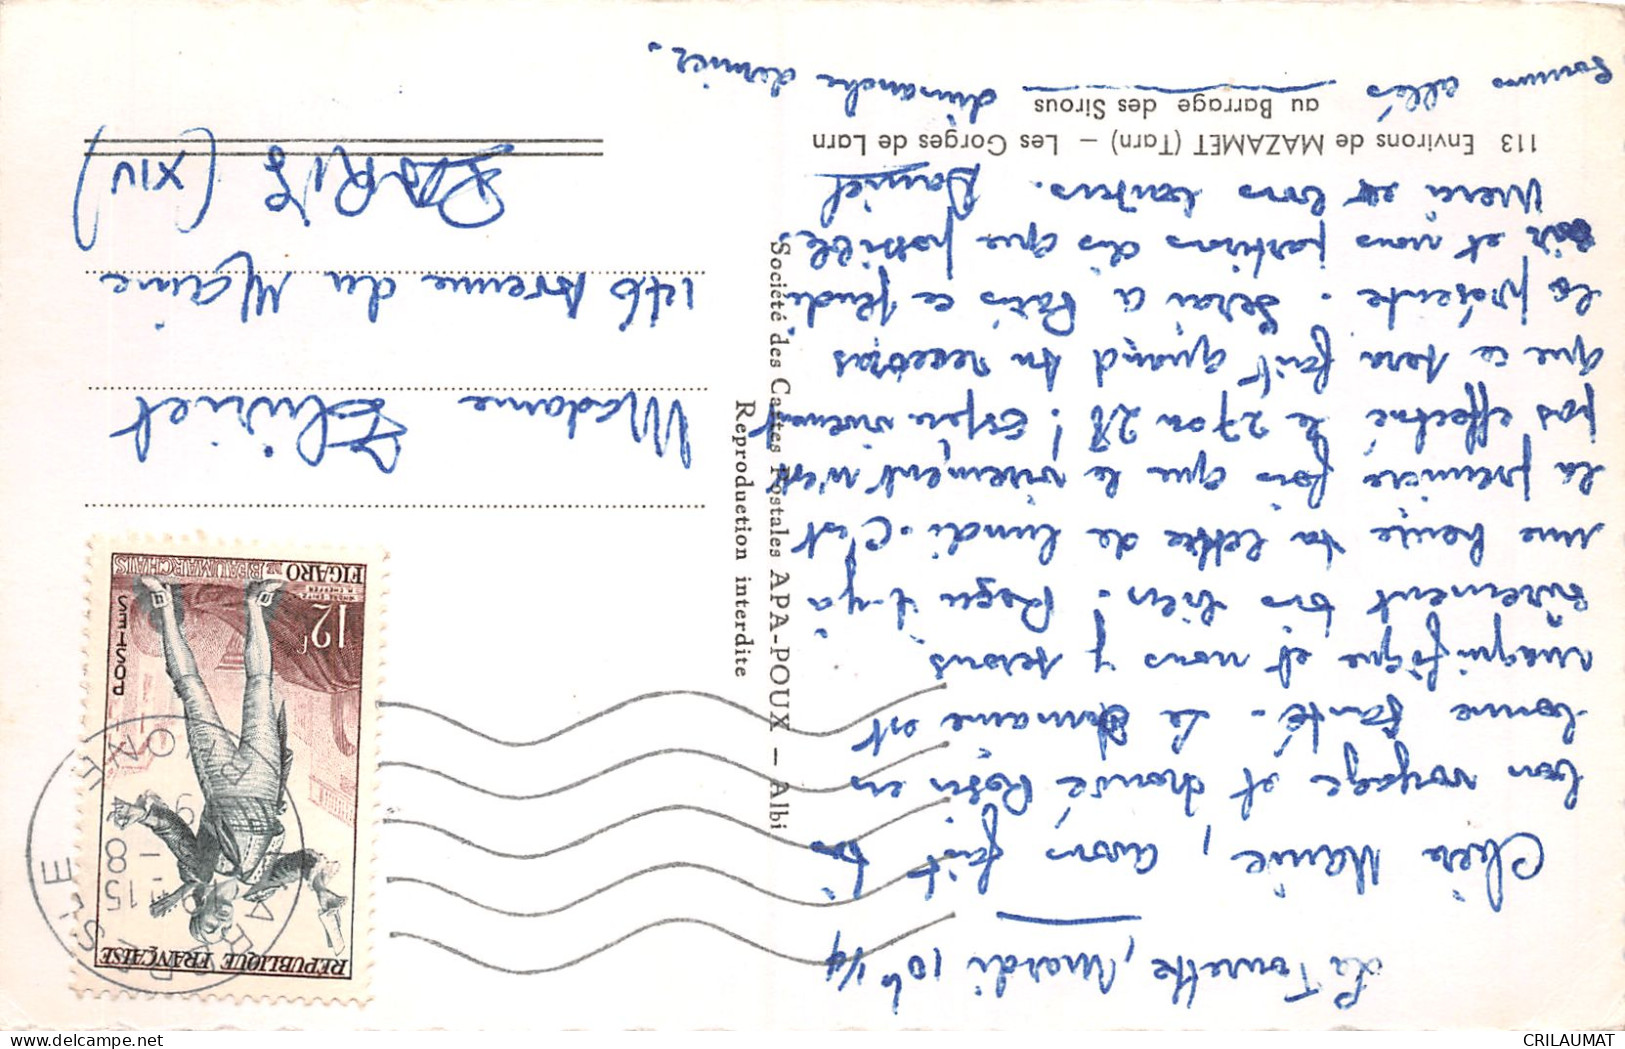 La Tourette, Mardi 10h 1/4
Chère Mamie, avons fait
bon voyage et trouvé Robin en
bonne santé. Le domaine est
magnifique et nous y serons
sûrement très bien. Reçu il y a
une heure ta lettre de lundi. C'est
la première fois que le virement n'est
pas effectué le 27 ou 28! Espère vivement
que ce sera fait quand tu recevras
la présente. Serai à Paris ce jeudi
soir et nous partirons dès que possible.
Merci et bons baisers. Daniel
113 Environs de MAZAMET (Tarn) – Les Gorges de Larn
au Barrage des Sirous
Sommes allés dimanche dernier.
Société des Cartes Postales APA-POUX – Albi
Reproduction interdite
REPUBLIQUE FRANÇAISE
12F
POSTES
FIGARO DE BEAUMARCHAIS
15
8
Madame
146 Avenue du Maine
PARIS (XIV)
CRILAUMAT